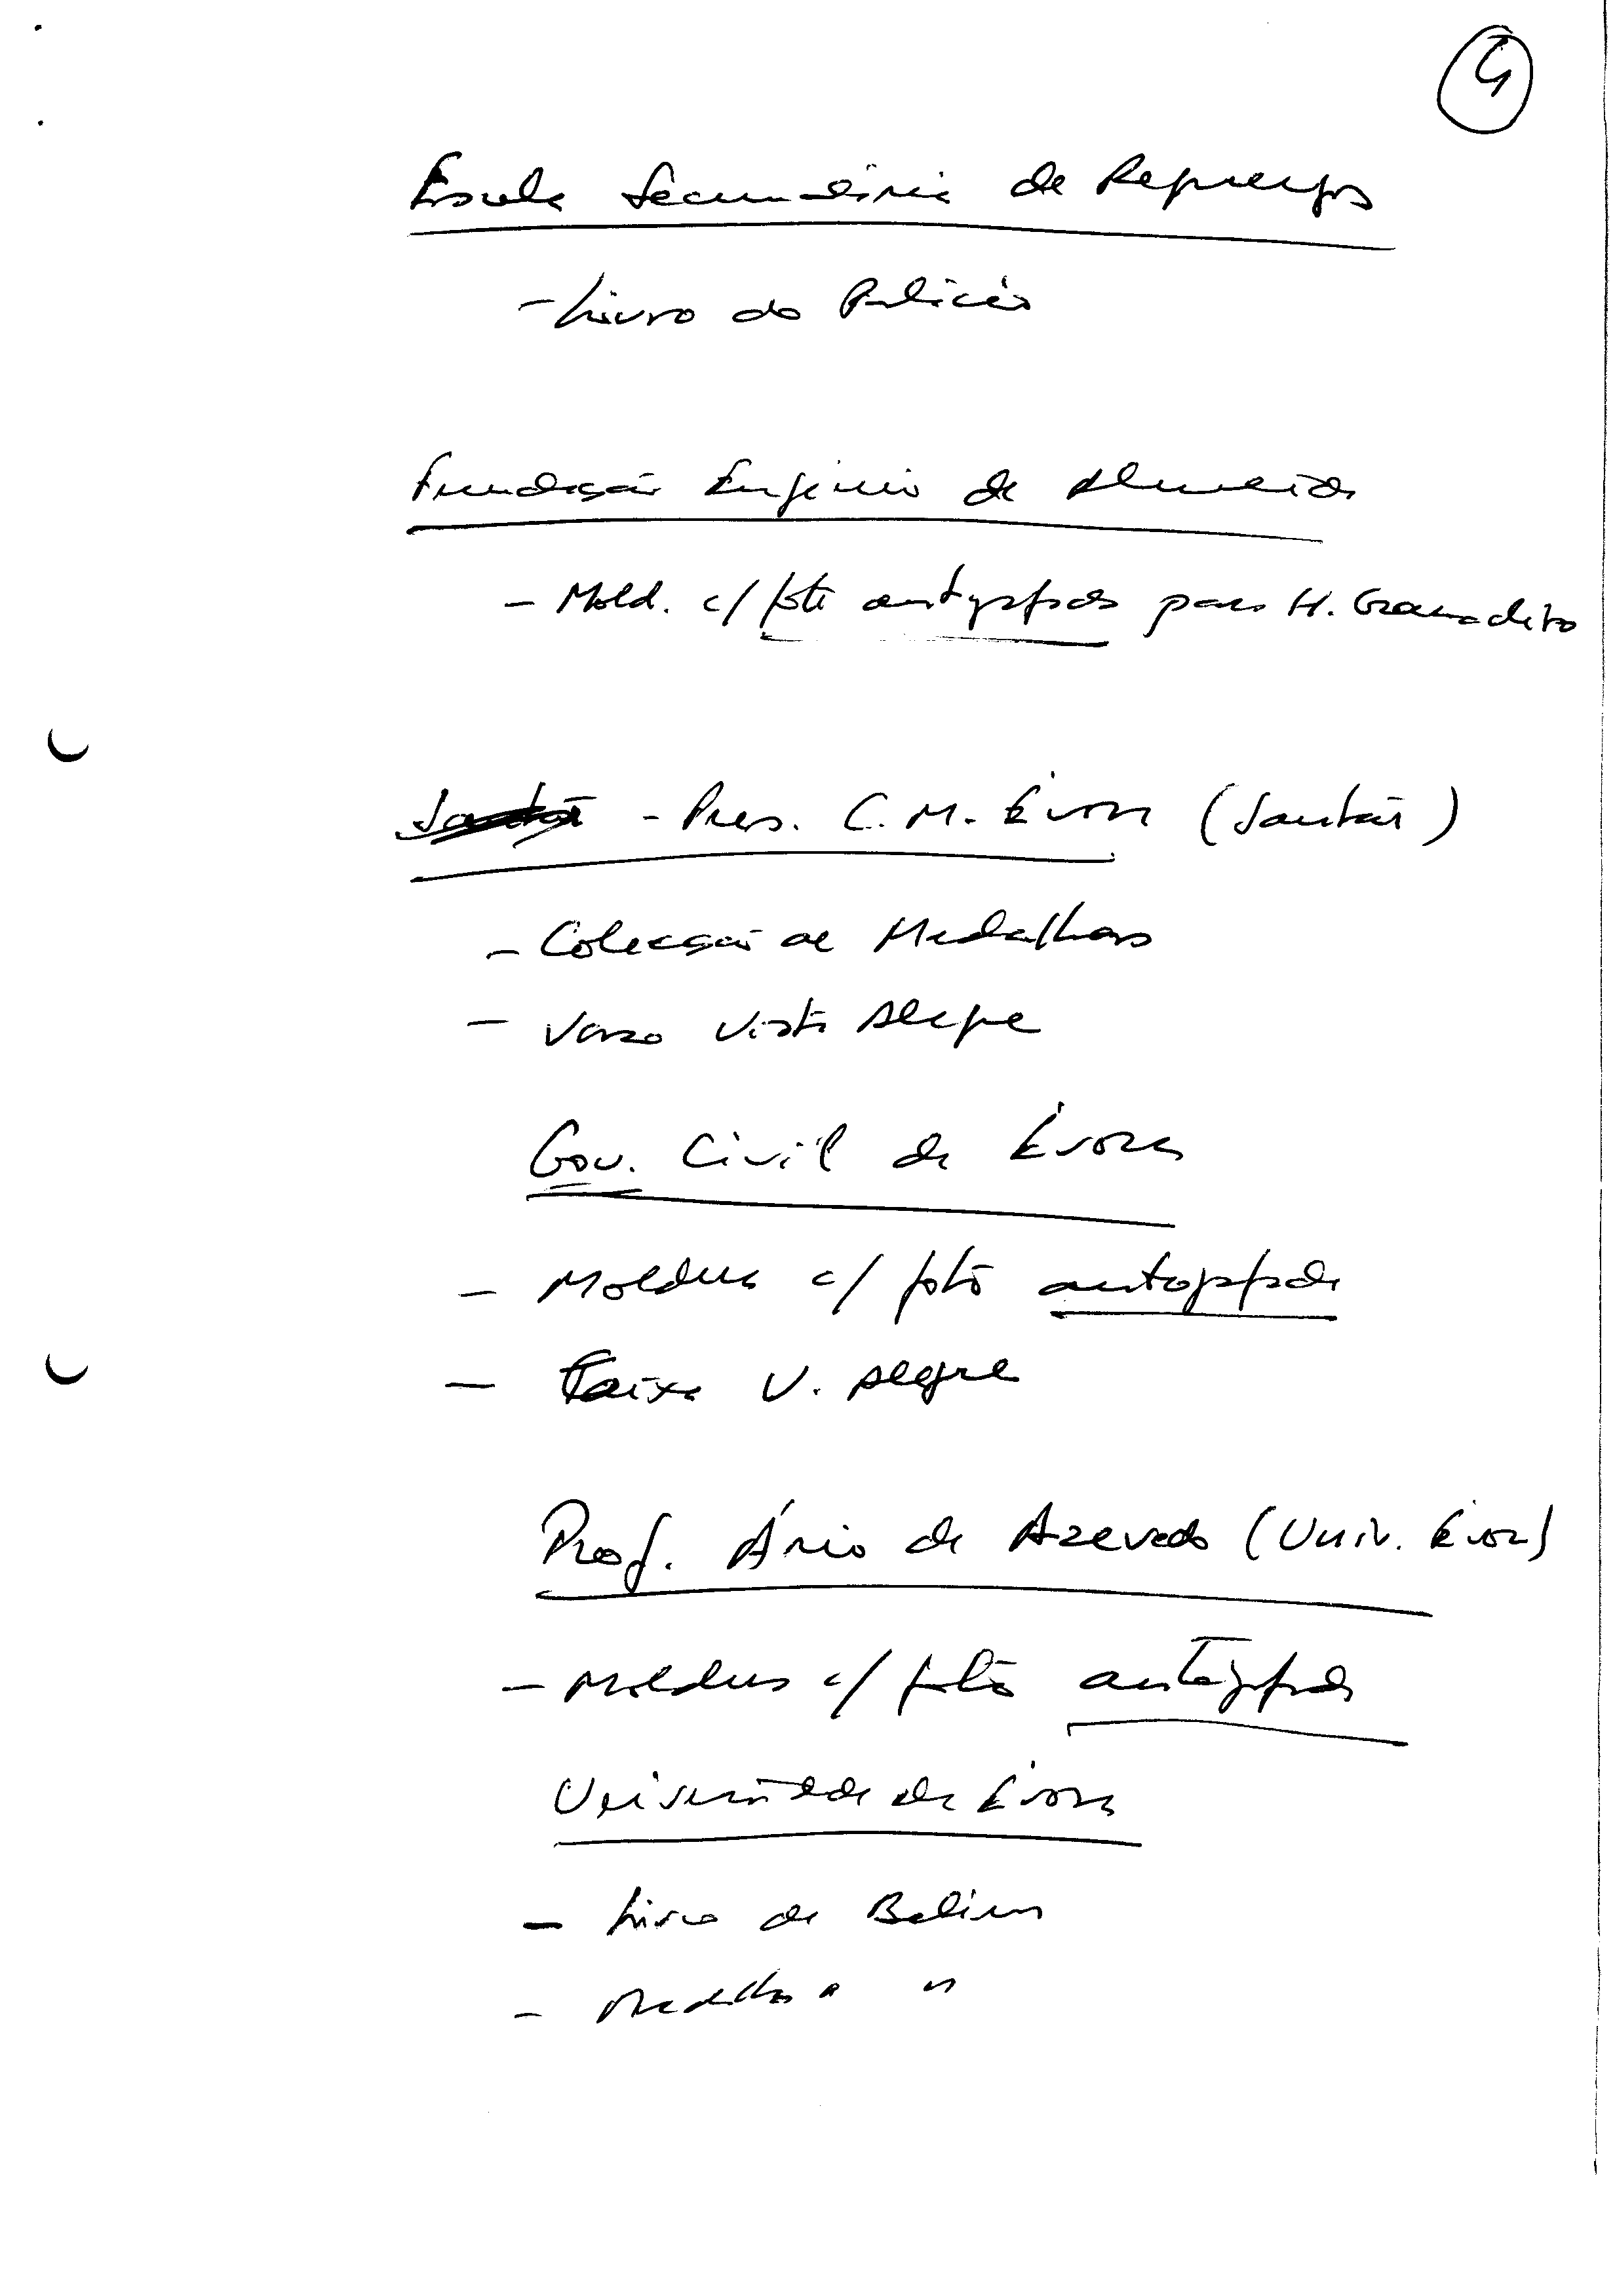 Escola Secundária de Reguengos
- Livro do Palácio
Fundação Eugénio de Almeida
- Mold. c/ foto autografada para H. Granadeiro
- Pres. C. M. Évora (Santar)
- Colecção de Medalhas
- Vaso Vista Alegre
Gov. Civil de Évora
- Moldura c/ foto autografada
- Caixa V. Alegre
Prof. Ário de Azevedo (Univ. Évora)
- Moldura c/ foto autografada
Universidade de Évora
- Livro de Belém
- Medalha " "